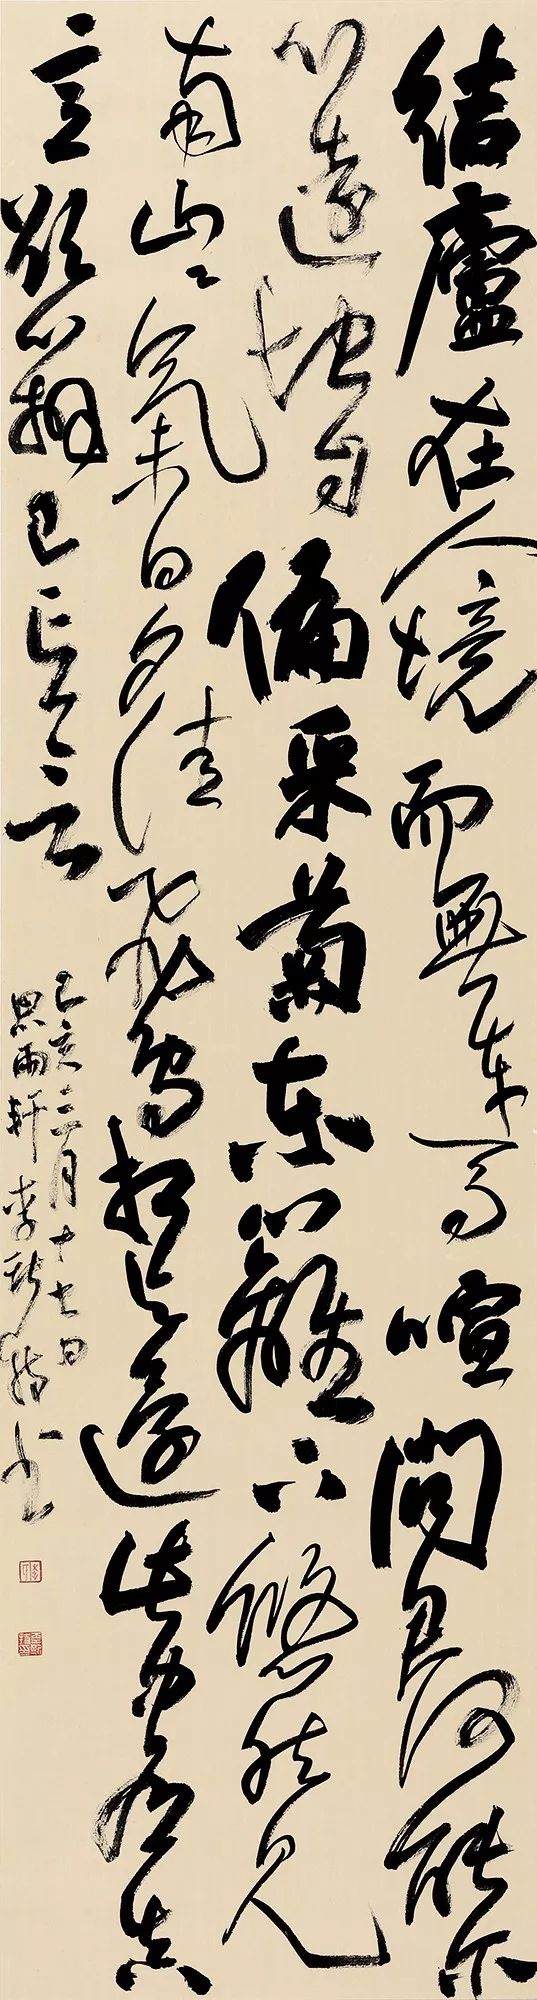 結廬在人境而無車馬喧問君何能尔
心遠地自偏采菊東籬下悠然見
南山〻氣日夕佳飛鳥相与還此中有真
意欲辨已忘言
己亥三月十七日
思雨軒李